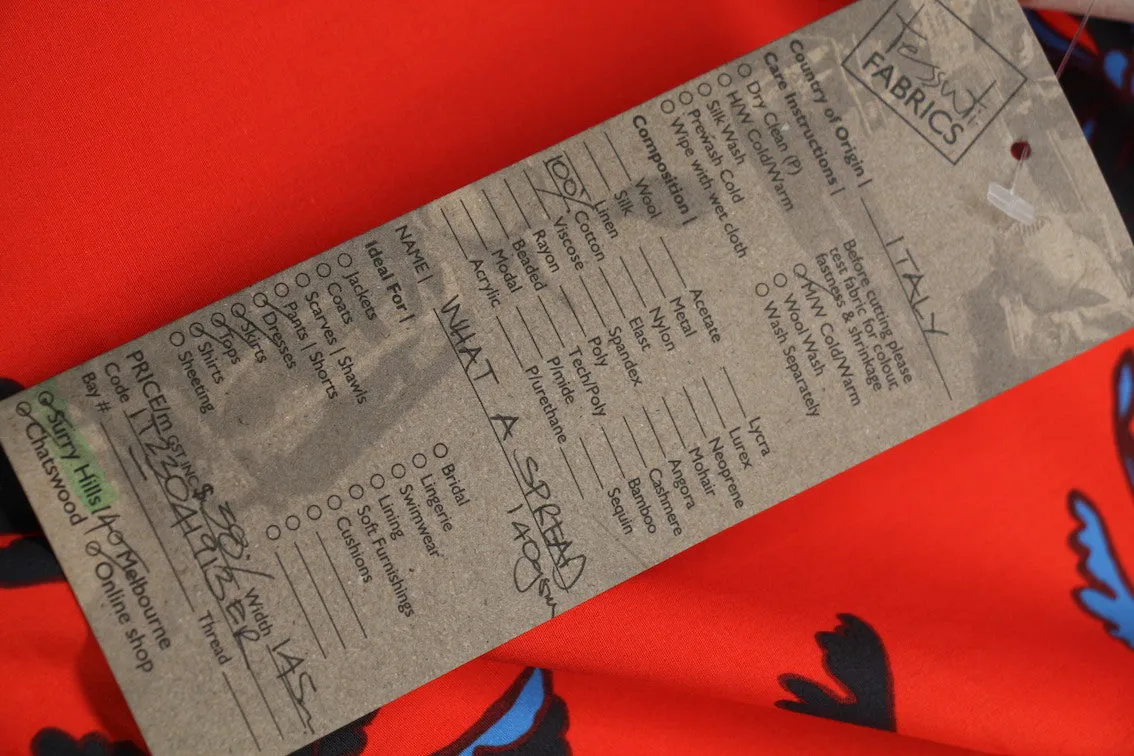 Tessuti
FABRICS
Country of Origin | ITALY
Care Instructions |
Dry Clean (P)
H/W Cold/Warm
Silk Wash
Prewash Cold
Wipe with wet cloth
Before cutting please
test fabric for colour
fastness & shrinkage
M/W Cold/Warm
Wool Wash
Wash Separately
Composition |
Wool
Silk
Linen
100% Cotton
Viscose
Rayon
Beaded
Modal
Acrylic
Acetate
Metal
Nylon
Elast
Spandex
Poly
Tech/Poly
P/mide
P/urethane
Lycra
Lurex
Neoprene
Mohair
Angora
Cashmere
Bamboo
Sequin
NAME | WHAT A SPREAD
140gsm
Ideal For |
Jackets
Coats
Scarves | Shawls
Pants | Shorts
Dresses
Skirts
Tops
Shirts
Sheeting
Bridal
Lingerie
Swimwear
Lining
Soft Furnishings
Cushions
PRICE/m GST INC $ 38/- Width 145
Code
Bay # Thread
Surry Hills | Melbourne
Chatswood | Online shop